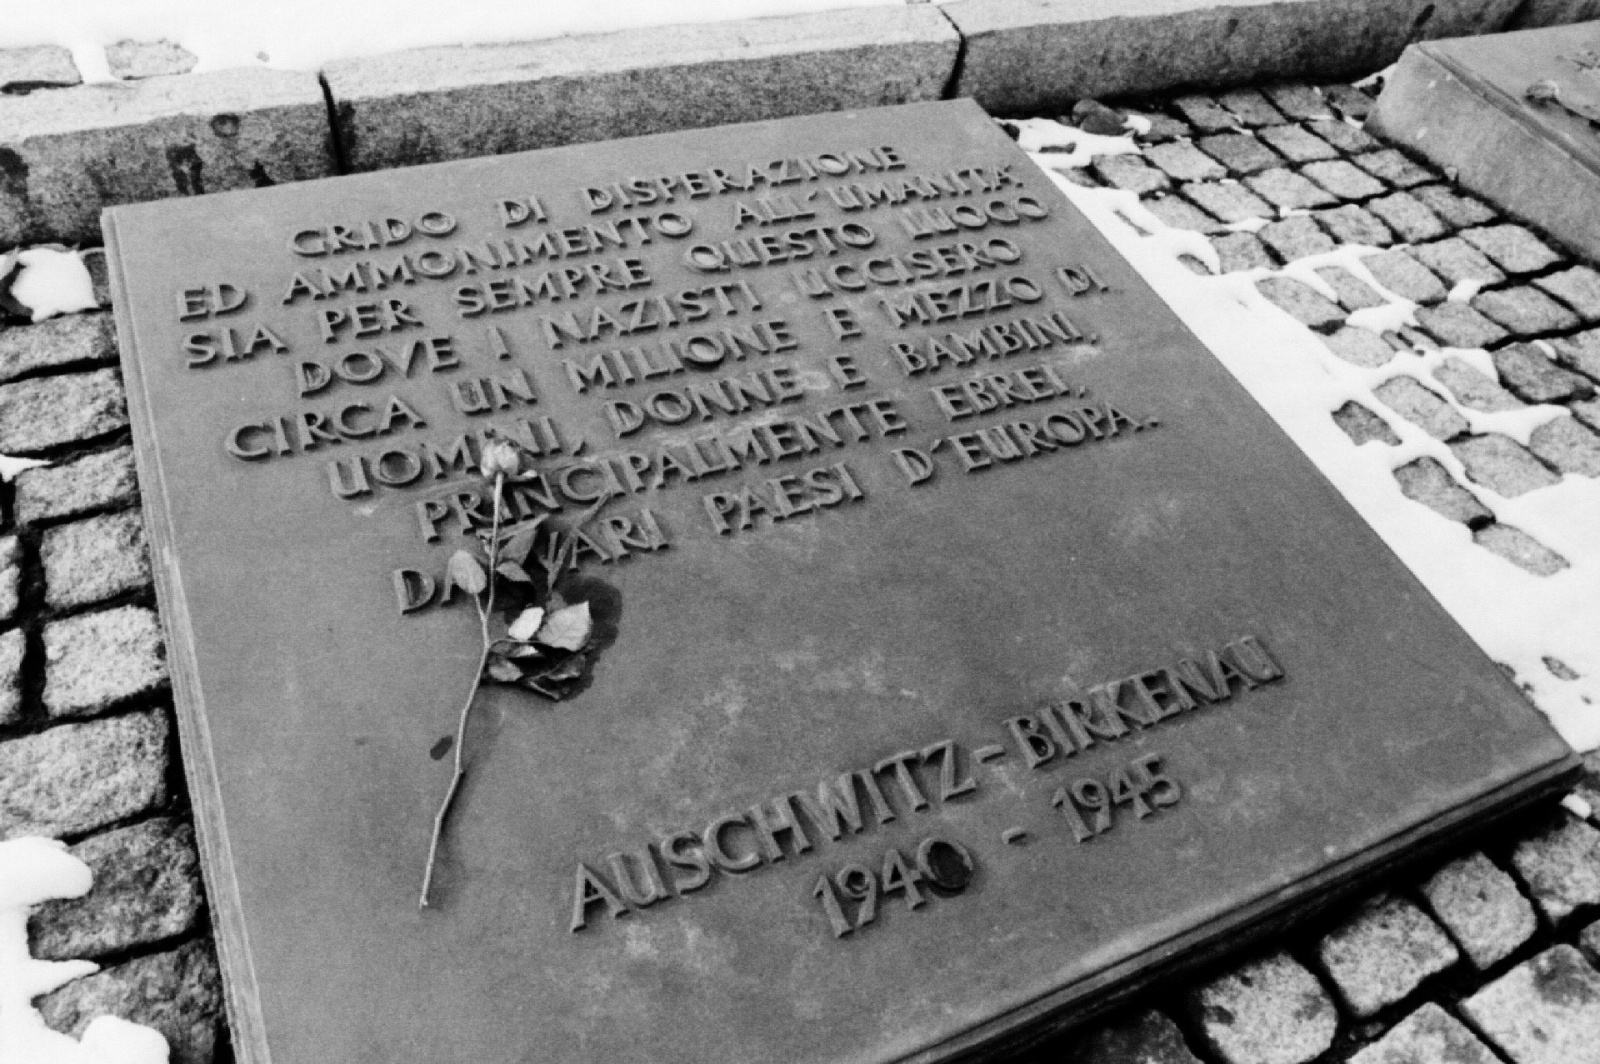 GRIDO DI DISPERAZIONE
ED AMMONIMENTO ALL'UMANITA'
SIA PER SEMPRE QUESTO LUOGO
DOVE I NAZISTI UCCISERO
CIRCA UN MILIONE E MEZZO DI
UOMINI, DONNE E BAMBINI,
PRINCIPALMENTE EBREI,
DA VARI PAESI D'EUROPA.
AUSCHWITZ-BIRKENAU
1940 - 1945